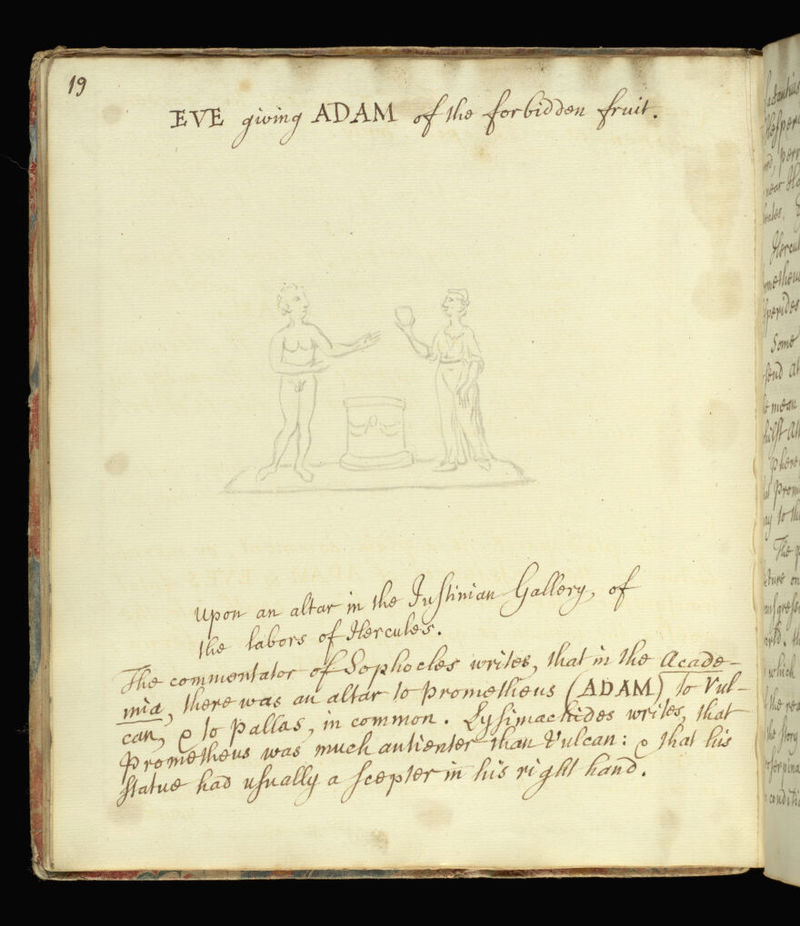 19
EVE giving ADAM of the forbidden fruit.
Upon an altar in the Justinian Gallery, of
the labors of Hercules.
The commentator of Sophocles writes, that in the Acade-
mia, there was an altar to Prometheus (ADAM) to Vul-
can, & to Pallas, in common. Lysimachides writes, that
Prometheus was much antienter than Vulcan: & that his
statue had usually a scepter in his right hand.